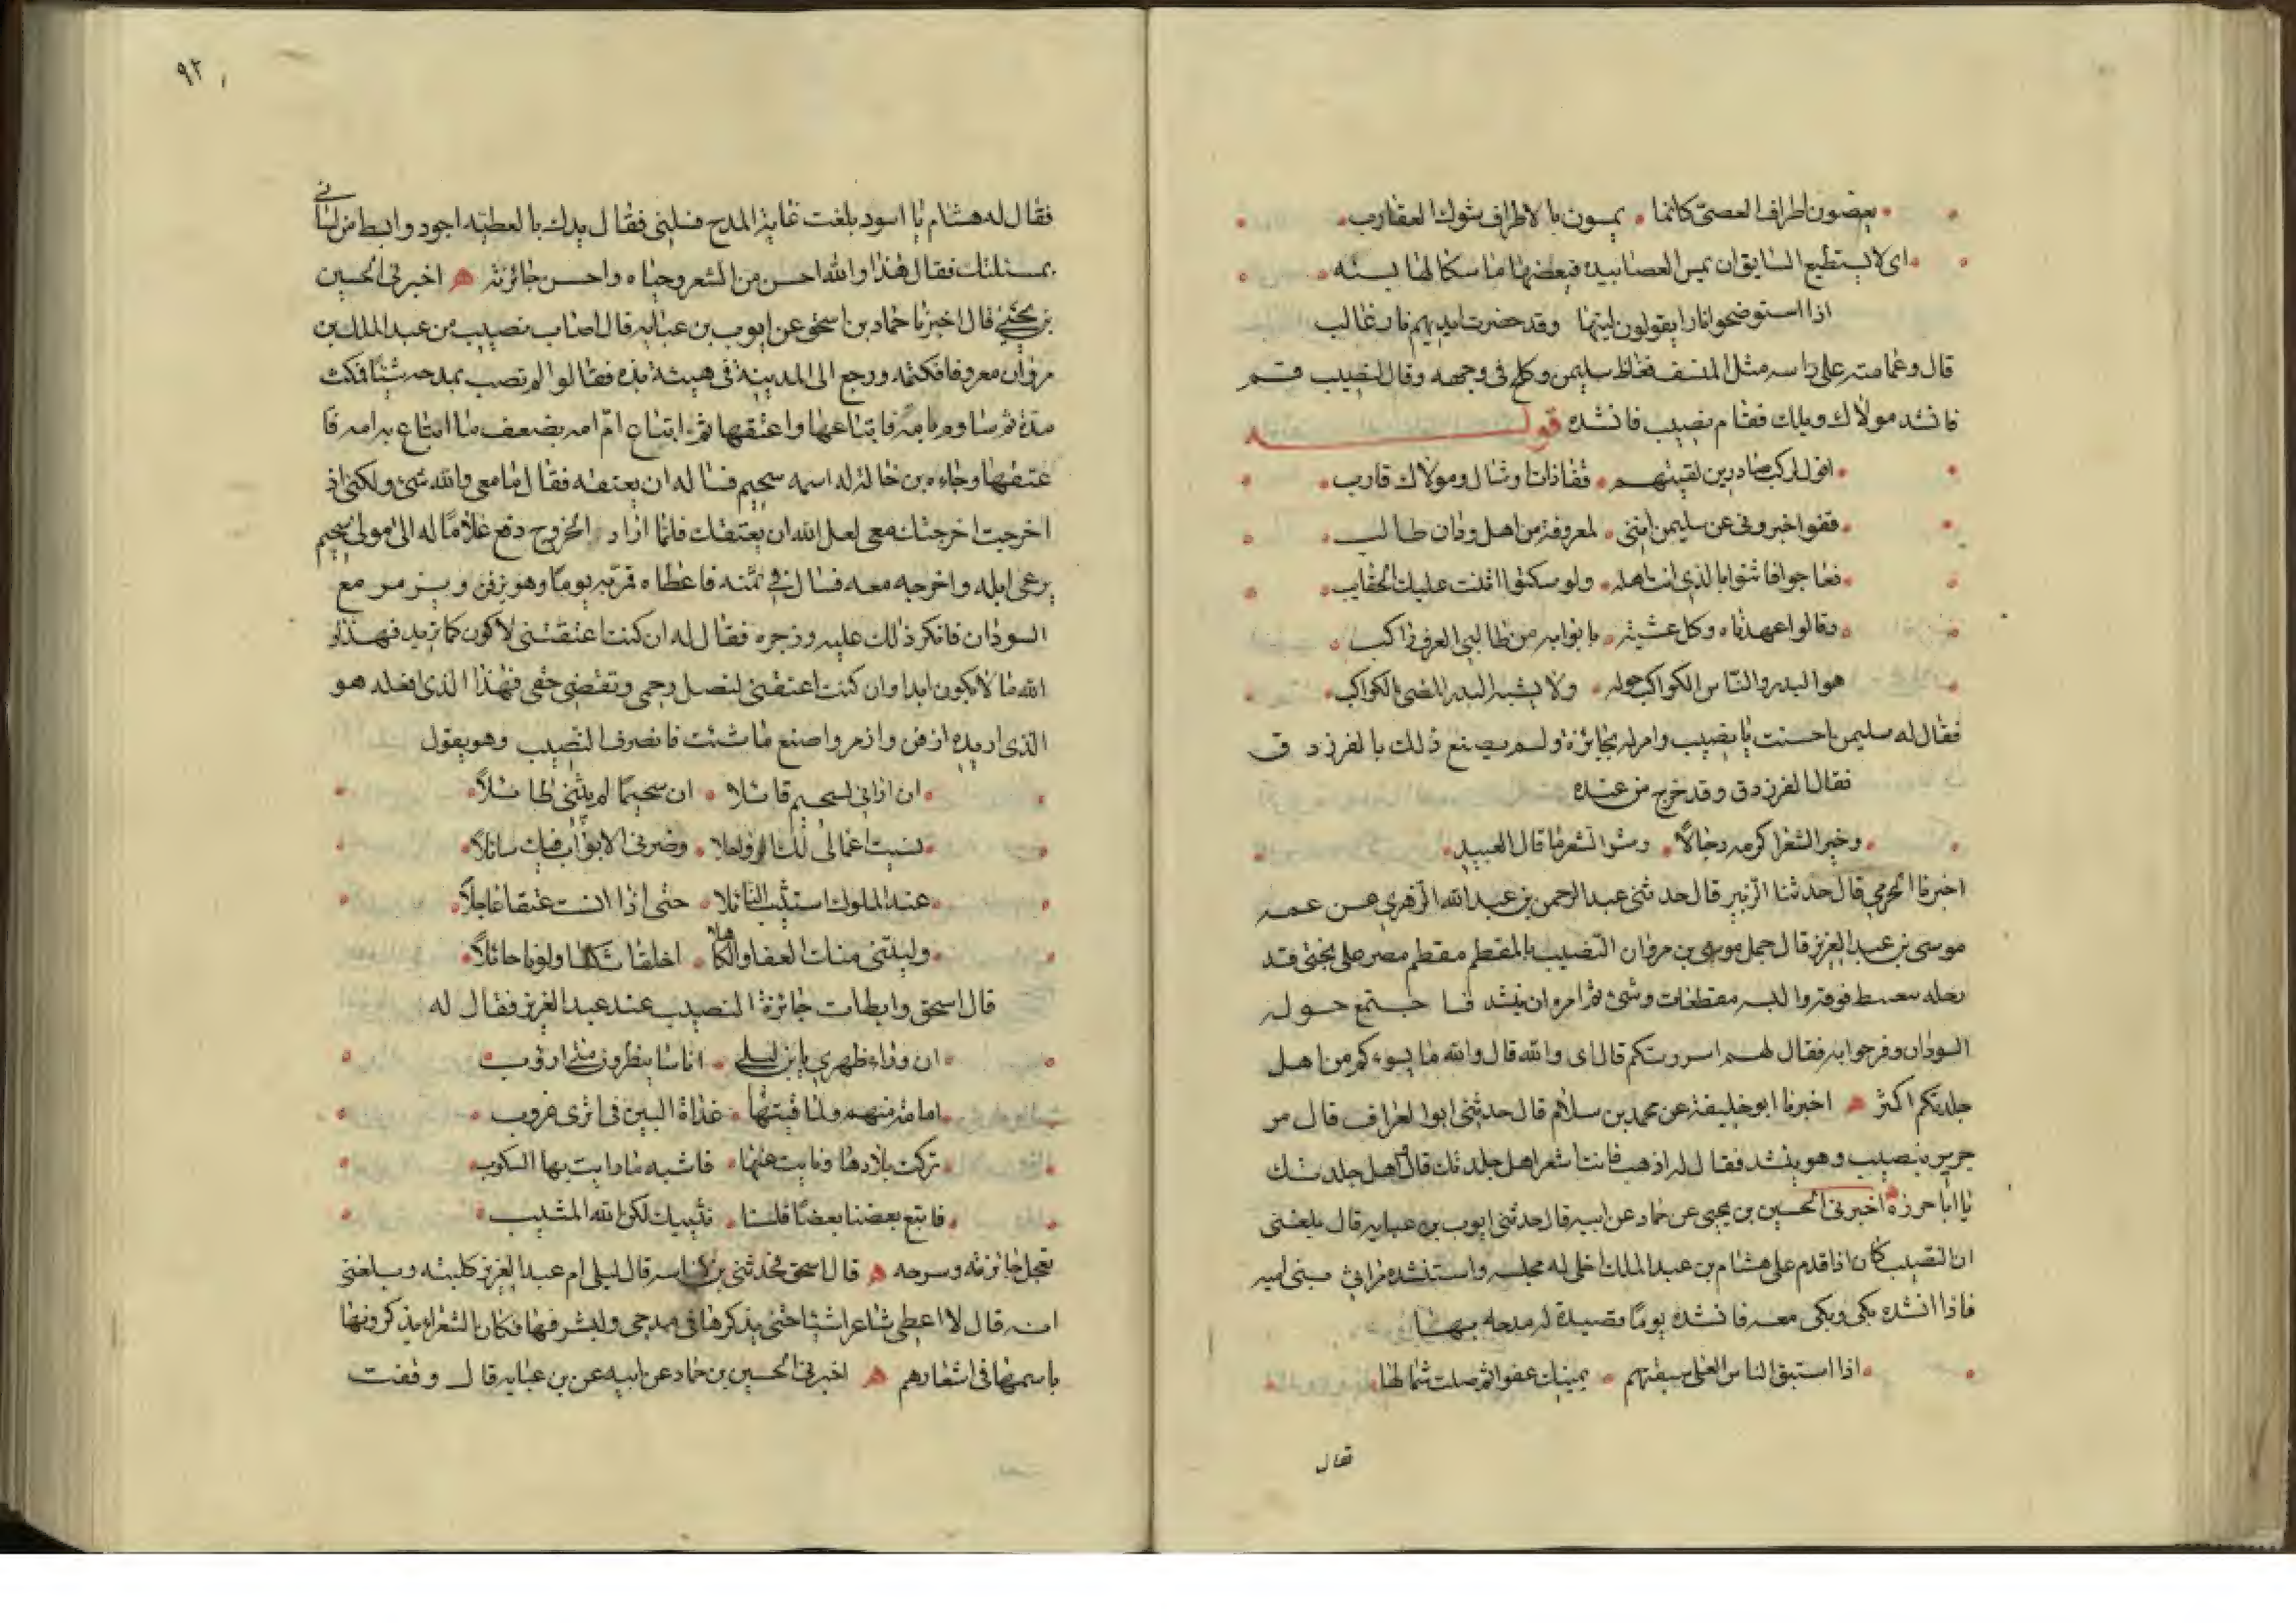 يعضون اطراف العصي كانما • يمسون بالاطراف شوك العقارب
اى لا يستطيع السايق ان يمس العصا بيده فيعضها ماسكا لها بسنه
اذا استوضحوا نارا يقولون ليتها وقد حضرت ايديهم نار غالب
قال وعمامته على راسه مثل المنسف فغاظ سليمن وكلح فى وجهه وقال لنصيب قم
فانشد مولاك ويلك فقام نصيب فانشده قوله
اقول لركب صادرين لقيتهم • قفا ذات اوشال ومولاك قارب
قفوا خبرونى عن سليمن اننى • لمعروفه من اهل ودان طالب
فعاجوا فاثنوا بالذى انت اهله • ولو سكتوا اثنت عليك الحقايب
وقالوا عهدناه وكل عشية • بابوابه من طالبي العرف راكب
هو البدر والناس الكواكب حوله • ولا يشبه البدر المضي الكواكب
فقال له سليمن احسنت يا نصيب وامر له بجائزة ولم يصنع ذلك بالفرزدق
فقال الفرزدق وقد خرج من عنده
وخير الشعر اكرمه رجالا • وشر الشعر ما قال العبيد
اخبرنا الحرمي قال حدثنا الزبير قال حدثنى عبد الرحمن بن عبد الله الزهري عن عمه
موسى بن عبد العزيز قال حمل موسى بن مروان النصيب بالمقطم مقطم مصر على بختى قد
رحله بغبيط فوقه والبسه مقطعات وشى ثم امره ان ينشد فاجتمع حوله
السودان وفرحوا به فقال لهم اسررتكم قال اى والله قال والله ما يسوءكم من اهل
جلدتكم اكثر ه اخبرنا ابو خليفة عن محمد بن سلام قال حدثنى ابو الغراف قال مر
جرير بنصيب وهو ينشد فقال له اذهب فانت اشعر اهل جلدتك قال واهل جلدتك
يا ابا حرزة اخبرنى الحسين بن يحيى عن حماد عن ابيه قال حدثنى ايوب بن عبايه قال بلغنى
ان النصيب كان اذا قدم على هشام بن عبد الملك اخلى له مجلسه واستنشده مراثى بنى اميه
فاذا انشده بكى وبكى معه فانشده يوما قصيدة له مدحه بها
اذا استبق الناس العلى سبقتهم • يمينك عفوا ثم صلت شمالها
فقال
٩٢
فقال له هشام يا اسود بلغت غاية المدح فسلنى فقال يدك بالعطيه اجود وابسط من لسانى
بمسئلتك فقال هذا والله احسن من الشعر وحباه واحسن جائزته ه اخبرنى الحسين
بن يحيى قال اخبرنا حماد بن اسحق عن ايوب بن عبايه قال اصاب نصيب من عبد الملك بن
مروان معروفا فكتمه ورجع الى المدينة فى هيئة بذه فقالوا لم تصب بمدحه شيئا فمكث
مدة ثم ساوم بامه فابتاعها واعتقها ثم ابتاع ام امه بضعف ما ابتاع به امه فا
عتقها وجاءه بن خالة له اسمه سحيم فساله ان يعتقه فقال ما معى والله شىء ولكنى اذ
اخرجت اخرجتك معى لعل الله ان يعتقك فلما اراد الخروج دفع غلاما له الى مولى سحيم
يرعى ابله واخرجه معه فسال فى ثمنه فاعطاه فمر به يوما وهو يزفن ويزمر مع
السودان فانكر ذلك عليه وزجره فقال له ان كنت اعتقتنى لاكون كما تريد فهذا و
الله ما لا يكون ابدا وان كنت اعتقتنى لتصل رحمى وتقضى حقى فهذا الذى افعله هو
الذى اريده ازفن وازمر واصنع ما شئت فانصرف النصيب وهو يقول
ان ارانى لسحيم قائلا • ان سحيما لم يثبنى طائلا
نسيت اعمالى لك الرواحلا • وضربى الابواب فيك سائلا
عند الملوك استثيب النائلا • حتى اذا انست عتقا عاجلا
وليتنى منك القفا والكاهلا • اخلقا شكسا ولونا حائلا
قال اسحق وابطات جائزة النصيب عند عبد العزيز فقال له
ان وراء ظهرى يا بن ليلى • اناسا ينظرون متى اروب
امامة منهم ولماقيتها • غداة البين فى اثرى غروب
تركت بلادها ونايت عنها • فاشبه ما رايت بها السلوب
فاتبع بعضنا بعضا فلسنا • نثيبك لكن الله المثيب
فعجل جائزته وسرحه ه قال اسحق فحدثنى بن قال ليلى ام عبد العزيز كلبيه وبلغنى
انه قال لا اعطى شاعرا شيئا حتى يذكرها فى مدحى ولشرفها فكان الشعراء يذكرونها
باسمها فى اشعارهم ه اخبرنى الحسين بن حماد عن ابيه عن بن عبايه قال وقفت